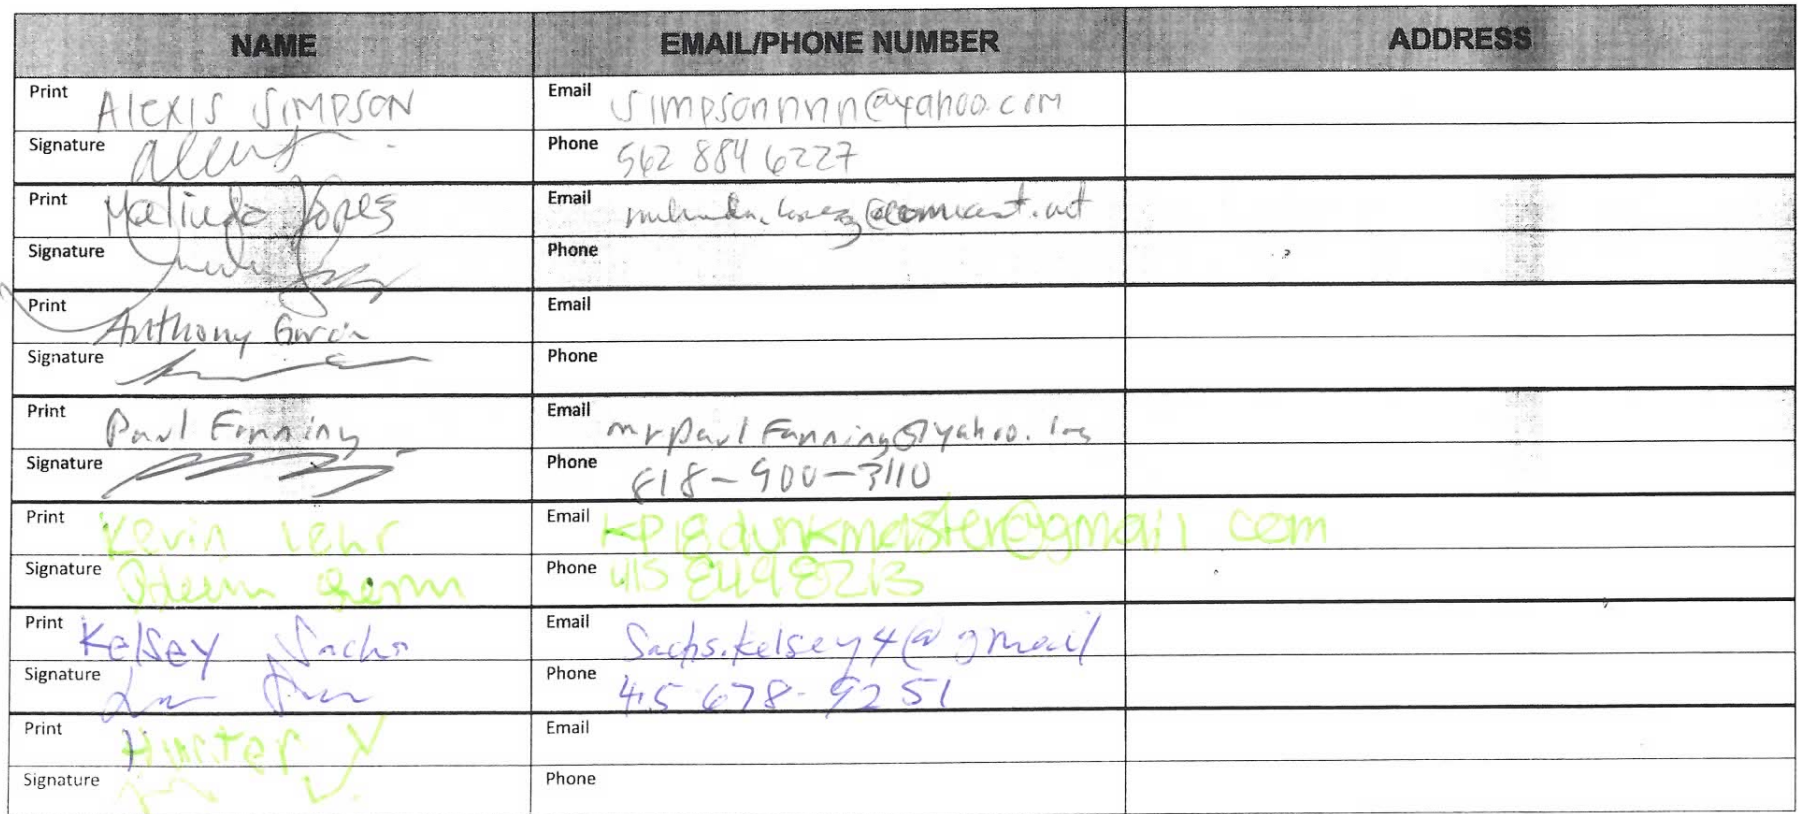 NAME EMAIL/PHONE NUMBER ADDRESS
Print Alexis Simpson Email simpsonnnn@yahoo.com
Signature Phone 562 884 6227
Print Malinda Lopez Email @comcast.net
Signature Phone
Print Anthony Garcia Email
Signature Phone
Print Paul Fanning Email mrpaulFanning@yahoo.
Signature Phone 818-900-3110
Print Kevin Lehr Email kp18dunkmaster@gmail com
Signature Phone 415
Print Kelsey Sachs Email Sachs.kelsey4@gmail
Signature Phone 415 678-9251
Print Hunter V Email
Signature Phone